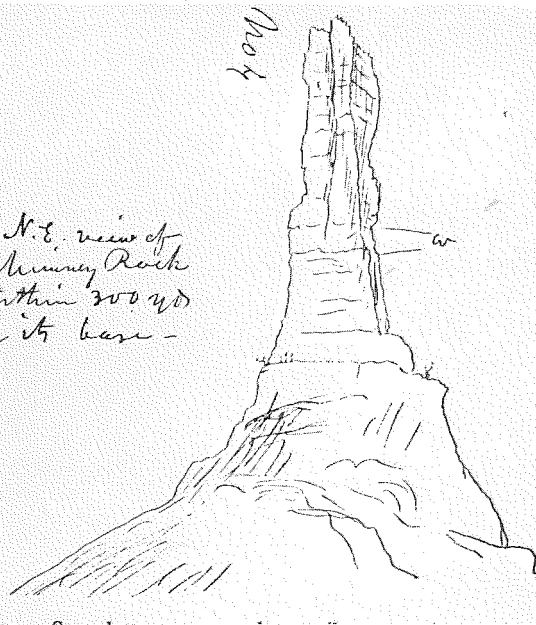 N.E. view of
himney Rock
ithin 300 yds
its base -
a